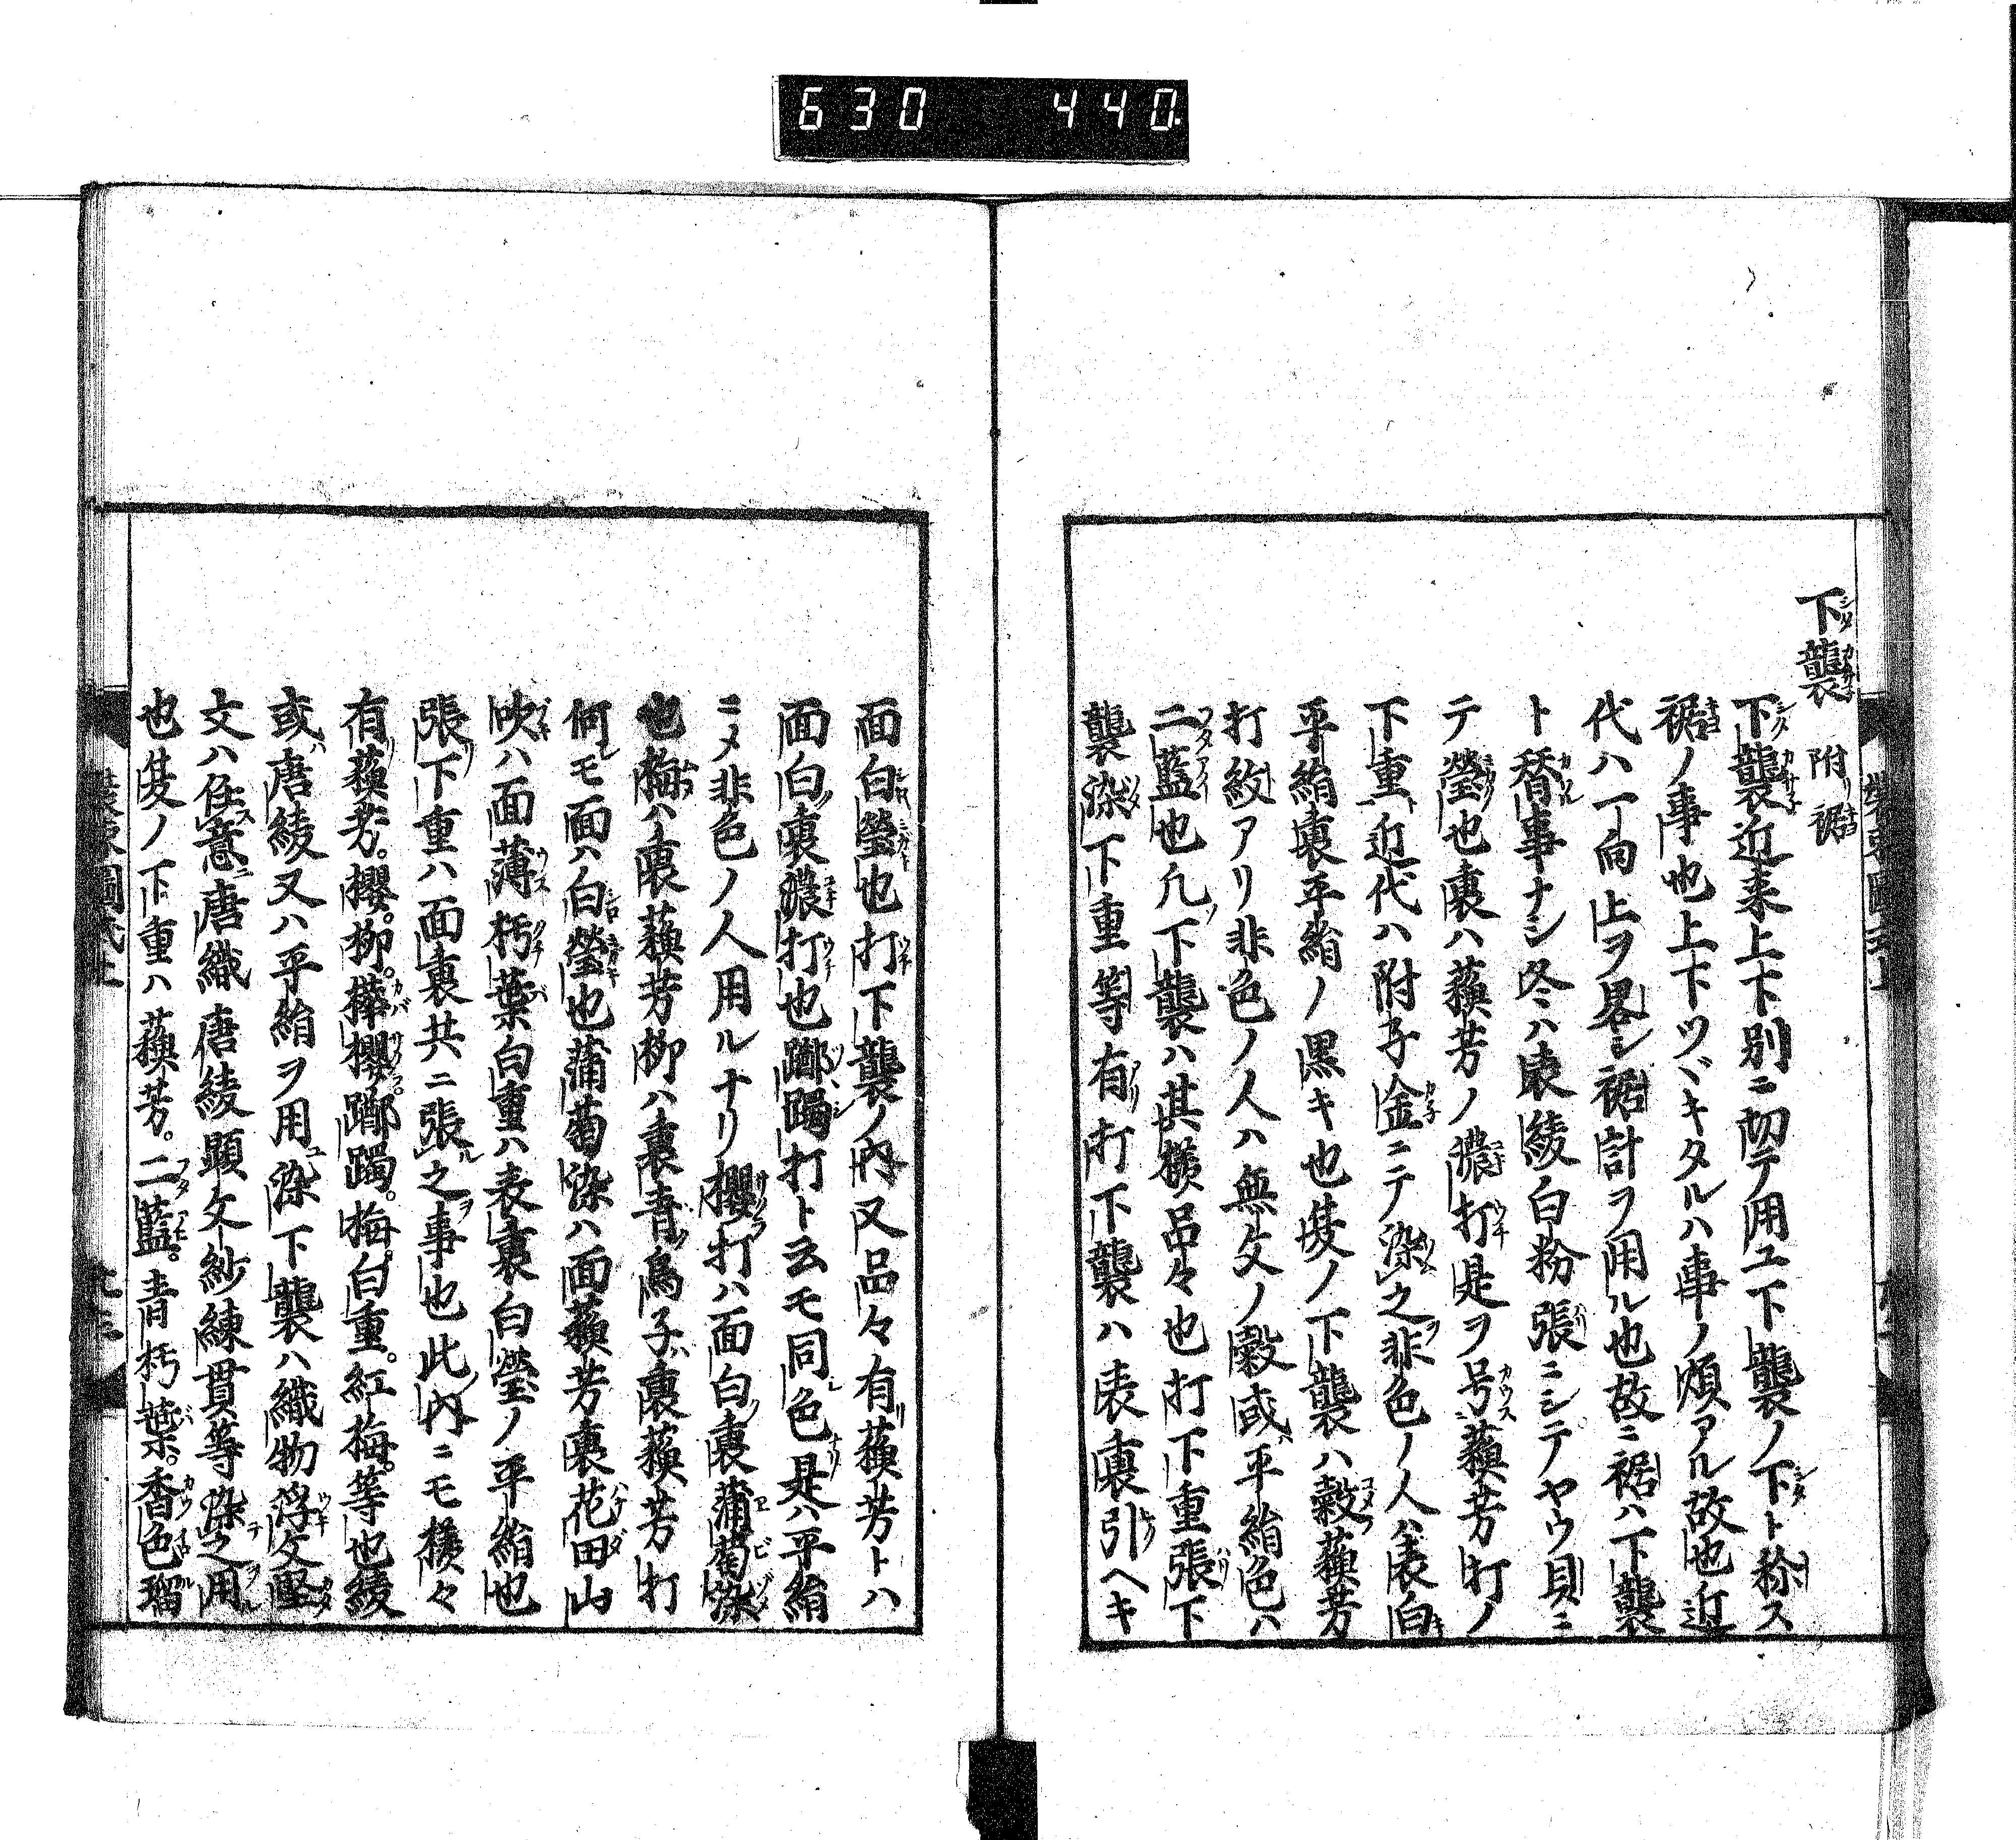 630 440
下襲 附リ裾
下襲近来上下別ニ切テ用ユ下襲ノ下ト称ス
裾ノ事也上下ツヾキタルハ事ノ煩アル故也近
代ハ一向上ヲ畧シ裾計ヲ用ル也故ニ裾ハ下襲
ト替事ナシ冬ハ表綾白粉張ニシテヤウ貝ニ
テ瑩也裏ハ蘓芳ノ濃打是ヲ号蘓芳打ノ
下重ト近代ハ附子金ニテ染之非色ノ人ハ表白
平絹裏平絹ノ黒キ也夏ノ下襲ハ縠蘓芳
打紋アリ非色ノ人ハ無文ノ縠或平絹色ハ
二藍也凢下襲ハ其様品々也打下重張下
襲染下重等有打下襲ハ表裏引ヘキ
面白瑩也打下襲ノ内又品々有蘓芳トハ
面白裏濃打也躑躅打ト云モ同色是ハ平絹
ニメ非色ノ人用ルナリ櫻打ハ面白裏蒲萄染
也梅ハ裏蘓芳柳ハ裏青鳥子裏蘓芳打
何モ面ハ白瑩也蒲萄染ハ面蘓芳裏花田山
吹ハ面薄朽葉白重ハ表裏白瑩ノ平絹也
張下重ハ面裏共ニ張之事也此内ニモ様々
有蘓芳。櫻。柳。樺櫻。躑躅。梅。白重。紅梅。等也綾
或唐綾又ハ平絹ヲ用染下襲ハ織物浮文堅
文ハ任意唐織唐綾顕文紗練貫等染之用
也夏ノ下重ハ蘓芳。二藍。青朽葉。香色瑠